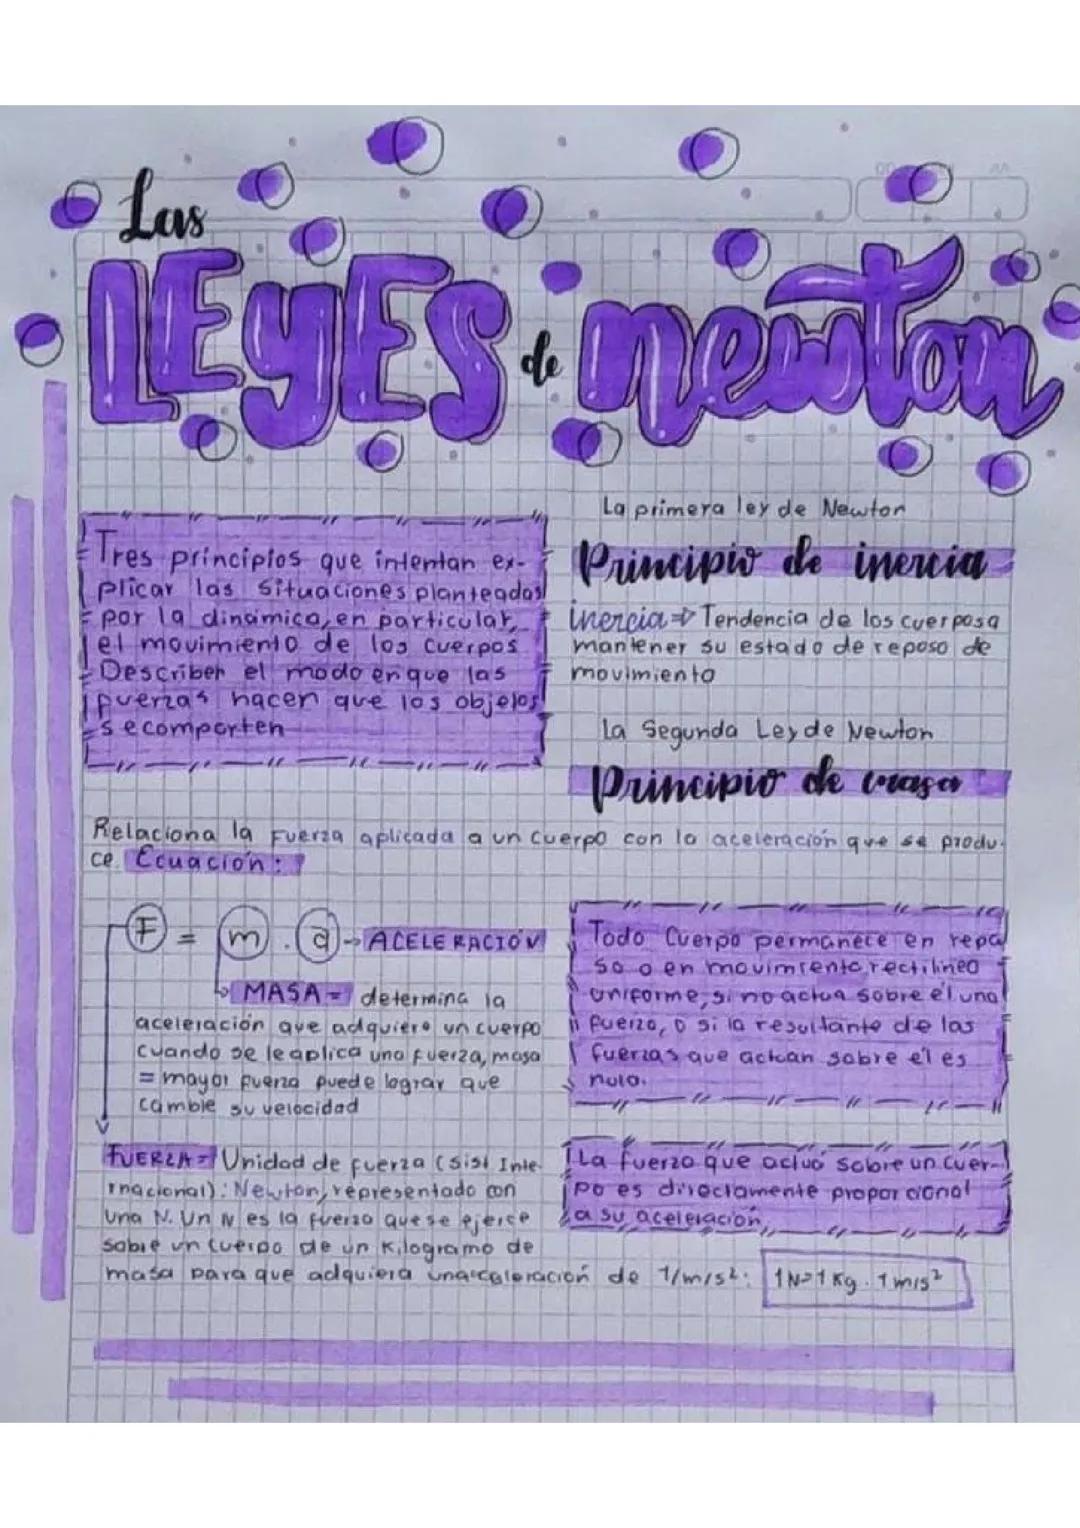 Las
LEyES de newton
Tres principios que intentan ex-
plicar las situaciones planteadas
por la dinámica, en particular,
el movimiento de los cuerpos.
Describen el modo en que las
fuerzas hacen que los objetos
se comporten
La primera ley de Newton
Principio de inercia
inercia ⇒ Tendencia de los cuerpos a
mantener su estado de reposo de
movimiento
La Segunda Ley de Newton
Principio de masa
Relaciona la fuerza aplicada a un cuerpo con la aceleración que se produ-
ce. Ecuación:
F = m . a → ACELERACIÓN
MASA = determina la
aceleración que adquiere un cuerpo
cuando se le aplica una fuerza, masa
= mayor fuerza puede lograr que
cambie su velocidad
Todo Cuerpo permanece en repo
so o en movimiento rectilíneo
uniforme, si no actua sobre él una
fuerza, o si la resultante de las
fuerzas que actúan sobre él es
nula.
FUERZA = Unidad de fuerza (sist Inte-
rnacional): Newton, representado con
una N. Un N es la fuerza que se ejerce
sobre un cuerpo de un Kilogramo de
masa para que adquiera una aceleración de 1/m/s²:
La fuerza que actua sobre un cuer-
po es directamente proporcional
a su aceleración,
1N→1 Kg . 1 m/s²